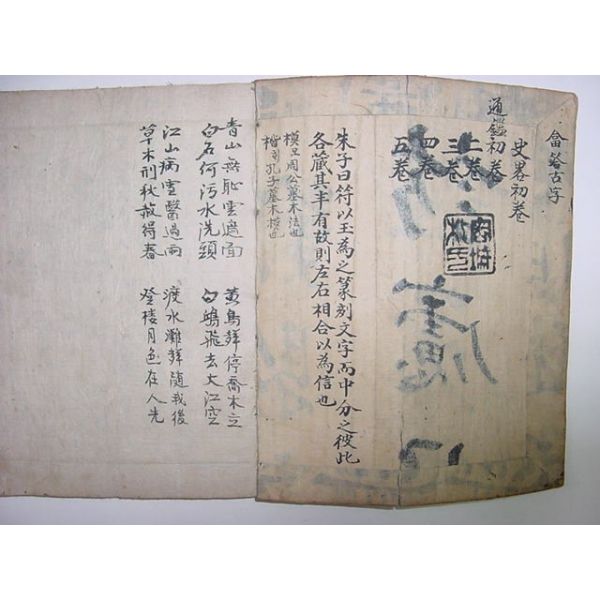 畣答古字
史畧初卷
通鑑初卷
二卷
三卷
四卷
五卷
朱子曰符以玉為之篆刻文字而中分之彼此
各藏其半有故則左右相合以為信也
模是周公墓木法也
楷則孔子墓木模也
青山無恥雲遮面
白石何污水洗頭
江山病雲醫過雨
草木刑秋赦得春
黃鳥聲停喬木立
白鷗飛去大江空
渡水灘聲隨我後
登楼月色在人先